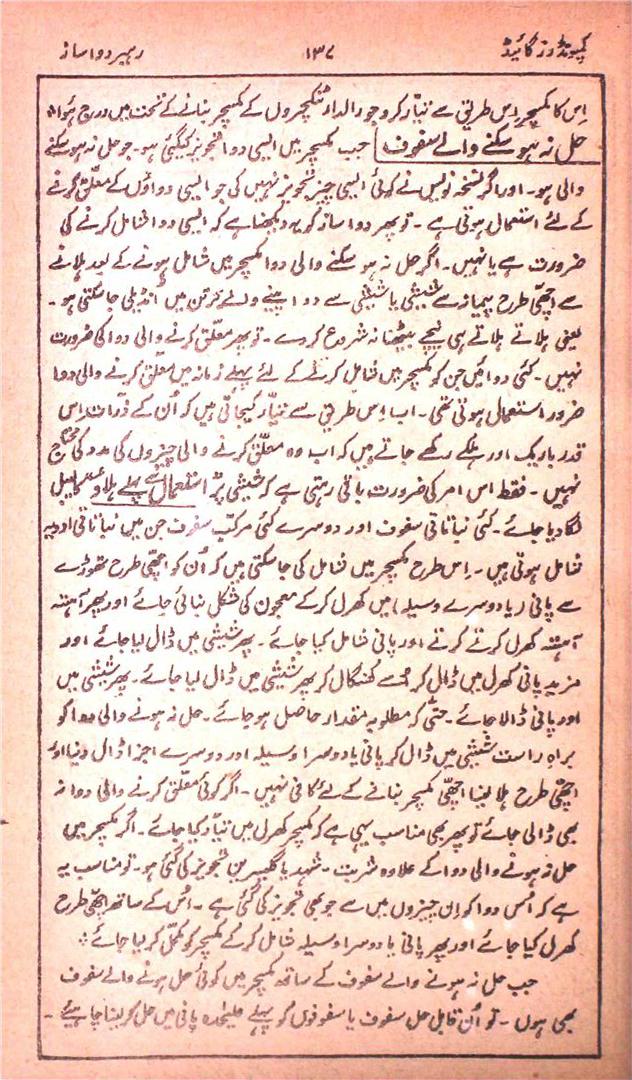 کمپونڈرز گائیڈ ۱۳۷ رہبر دوا ساز
اِس کا مکسچر اِس طریقے سے تیار کرو جو رالدار ٹنکچروں کے مکسچر بنانے کے تحت میں درج ہوا۔
حل نہ ہو سکنے والے سفوف جب مکسچر میں ایسی دوا تجویز کیگئی ہو۔ جو حل نہ ہو سکنے
والی ہو۔ اور اگر نسخہ نویس نے کوئی ایسی چیز تجویز نہیں کی جو ایسی دواؤں کے معلّق کرنے
کے لئے استعمال ہوتی ہے۔ تو پھر دوا ساز کو یہ دیکھنا ہے کہ ایسی دوا شامل کرنے کی
ضرورت ہے یا نہیں۔ اگر حل نہ ہو سکنے والی دوا مکسچر میں شامل ہونے کے بعد ہلانے
سے اچھی طرح پیمانہ سے شیشی یا شیشی سے دوا پینے والے برتن میں انڈیلی جا سکتی ہو۔
یعنی ہلاتے ہلاتے ہی نیچے بیٹھنا نہ شروع کر دے۔ تو پھر معلّق کرنے والی دوا کی ضرورت
نہیں۔ کئی دوائیں جن کو مکسچر میں شامل کرنے کے لئے پہلے زمانہ میں معلّق کرنے والی دوا
ضرور استعمال ہوتی تھی۔ اب اِس طریق سے تیار کیجاتی ہیں کہ اُن کے ذرات اِس
قدر باریک اور ہلکے رکھے جاتے ہیں کہ اب وہ معلّق کرنے والی چیزوں کی مدد کی محتاج
نہیں۔ فقط اس امر کی ضرورت باقی رہتی ہے کہ شیشی پر استعمال سے پہلے ہلاؤ لیبل
لگا دیا جائے۔ کئی نباتاتی سفوف اور دوسرے کئی مرکّب سفوف جن میں نباتاتی ادویہ
شامل ہوتی ہیں۔ اِس طرح مکسچر میں شامل کی جا سکتی ہیں کہ اُن کو اچھی طرح تھوڑے
سے پانی (یا دوسرے وسیلہ) میں کھرل کر کے معجون کی شکل بنائی جائے اور پھر آہستہ
آہستہ کھرل کرتے کرتے اور پانی شامل کیا جائے۔ پھر شیشی میں ڈال لیا جائے اور
مزید پانی کھرل میں ڈال کر اُسے کھنگال کر پھر شیشی میں ڈال لیا جائے۔ پھر شیشی میں
اور پانی ڈالا جائے۔ حتّٰی کہ مطلوبہ مقدار حاصل ہو جائے۔ حل نہ ہونے والی دوا کو
براہِ راست شیشی میں ڈال کر پانی یا دوسرا وسیلہ اور دوسرے اجزا ڈال دینا اور
اچھی طرح ہلا لینا اچھّی مکسچر بنانے کے لئے کافی نہیں۔ اگر کوئی معلّق کرنے والی دوا نہ
بھی ڈالی جائے تو پھر بھی مناسب یہی ہے کہ مکسچر کھرل میں تیار کیا جائے۔ اگر مکسچر میں
حل نہ ہونے والی دوا کے علاوہ شربت۔ شہد یا گلیسرین تجویز کی گئی ہو۔ تو مناسب یہ
ہے کہ اُس دوا کو اِن چیزوں میں سے جو بھی تجویز کی گئی ہے۔ اُس کے ساتھ اچھّی طرح
کھرل کیا جائے اور پھر پانی یا دوسرا وسیلہ شامل کر کے مکسچر کو مکمّل کر لیا جائے ؞
جب حل نہ ہونے والے سفوف کے ساتھ مکسچر میں کوئی حل ہونے والے سفوف
بھی ہوں۔ تو اُن قابل حل سفوف یا سفوفوں کو پہلے علیٰحدہ پانی میں حل کر لینا چاہیئے۔